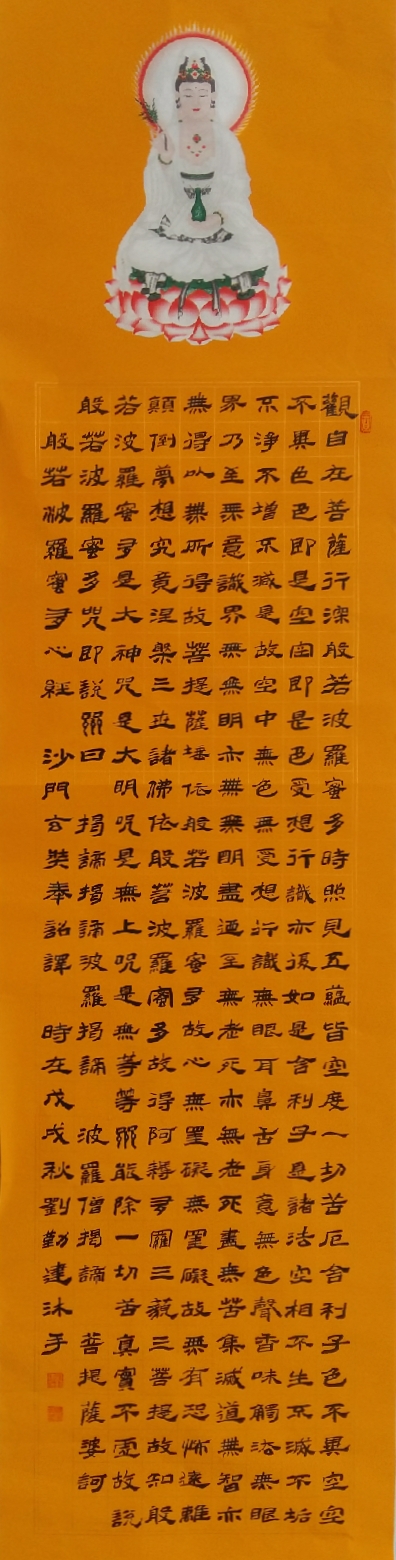 觀自在菩薩行深般若波羅蜜多時照見五蘊皆空度一切苦厄舍利子色不異空空
不異色色即是空空即是色受想行識亦復如是舍利子是諸法空相不生不滅不垢
不淨不增不減是故空中無色無受想行識無眼耳鼻舌身意無色聲香味觸法無眼
界乃至無意識界無無明亦無無明盡迺至無老死亦無老死盡無苦集滅道無智亦
無得以無所得故菩提薩埵依般若波羅蜜多故心無罣礙無罣礙故無有恐怖遠離
顛倒夢想究竟涅槃三世諸佛依般若波羅蜜多故得阿耨多羅三藐三菩提故知般
若波羅蜜多是大神咒是大明呪是無上呪是無等等咒能除一切苦真實不虛故說
般若波羅蜜多咒即說咒曰 揭諦揭諦波羅揭諦 波羅僧揭諦 菩提薩婆訶
般若波羅蜜多心經 沙門玄奘奉詔譯 時在戊戌秋劉勤達沐手